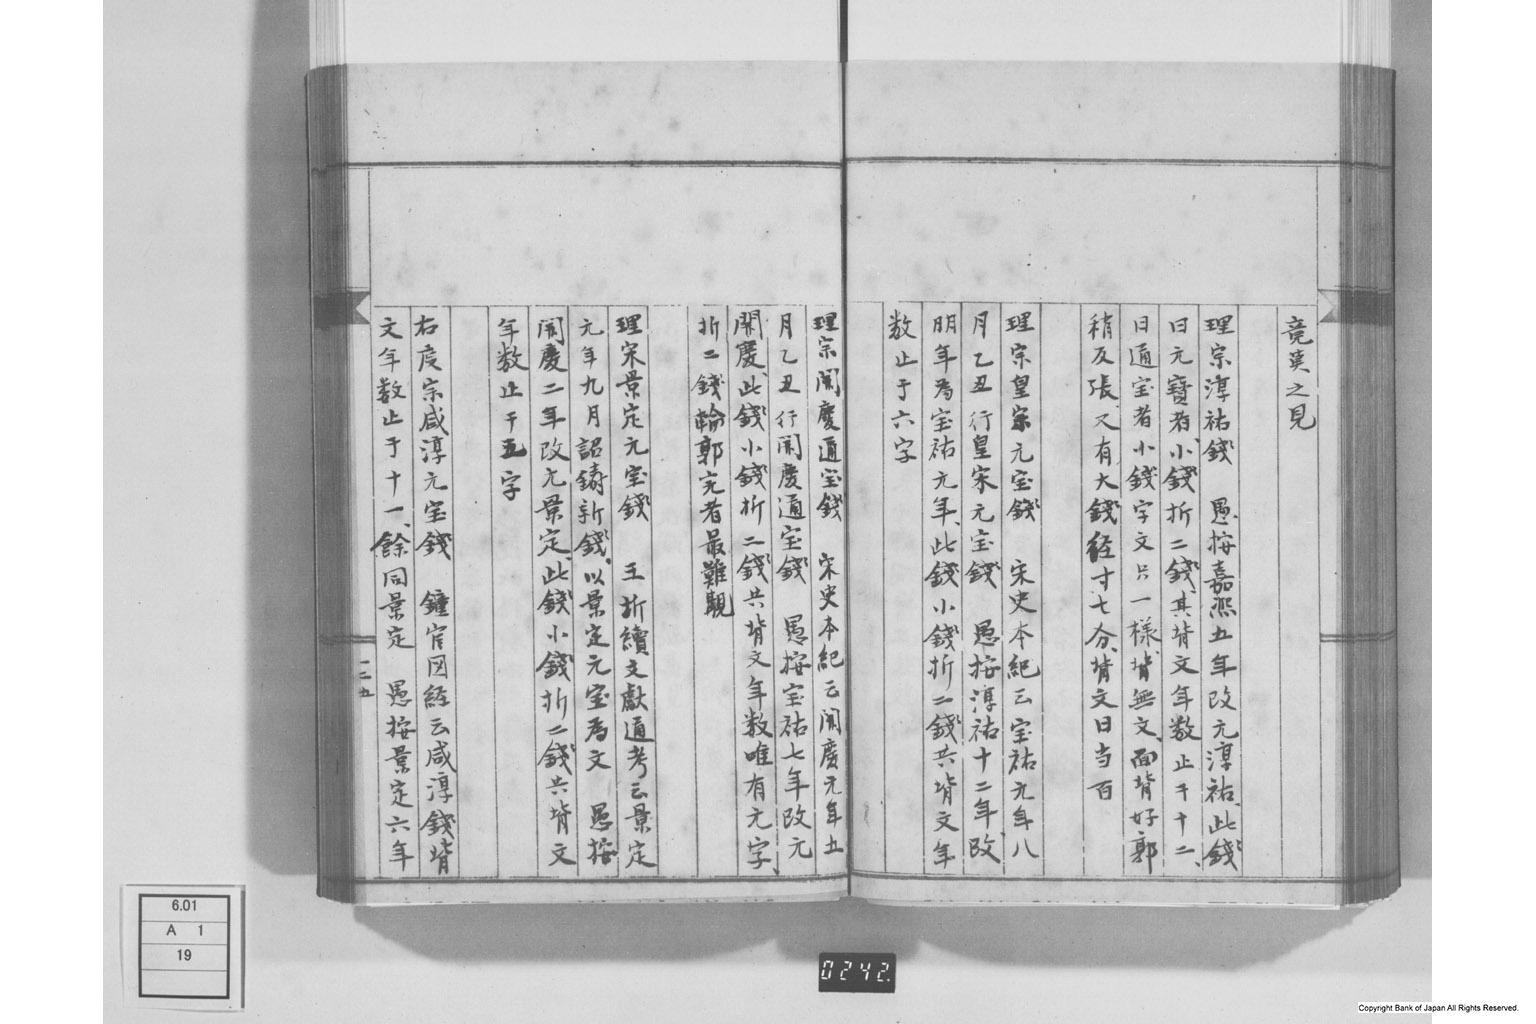 竟莫之見
理宗淳祐錢　愚按嘉熙五年改元淳祐、此錢
曰元寶者、小錢折二錢、其背文年数止于十二、
曰通宝者小錢字文只一様、背無文、面背好郭
稍反張、又有大錢経寸七分、背文曰当百
理宗皇宗元宝錢　宋史本紀云宝祐元年八
月乙丑行皇宋元宝錢　愚按淳祐十二年改
明年為宝祐元年、此錢小錢折二錢共背文年
数止于六字
理宗開慶通宝錢　宋史本紀云開慶元年五
月乙丑行開慶通宝錢　愚按宝祐七年改元
開慶、此錢小錢折二錢共背文年数唯有元字、
折二錢輪郭完者最難覯
理宋景定元宝錢　王圻續文獻通考云景定
元年九月詔鋳新錢、以景定元宝為文　愚按
開慶二年改元景定、此錢小錢折二錢共背文
年数止于五字
右度宗咸淳元宝錢　鐘官図経云咸淳錢背
文年数止于十一、餘同景定　愚按景定六年
二五
6.01
A 1
19
0242.
Copyright Bank of Japan All Rights Reserved.